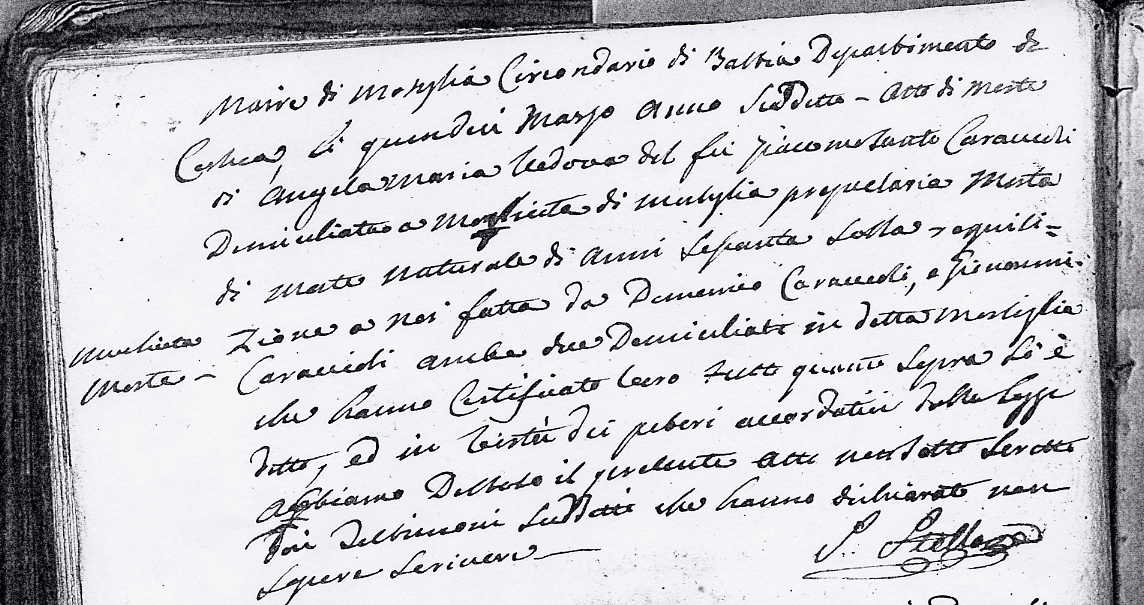 Maire di Morsiglia Circondario di Bastia Departimento di
Corsica, li quindeci Marzo Anno Suddetto - Atto di Morte
di Angela Maria Vedova del fù Giacomo Santo Caraccioli
Domiciliata a di Morsiglia proprietaria Morta
di Morte naturale di Anni Sessanta Sulla requisi=
zione a noi fatta da Domenico Caraccioli, e Giovanni
Caraccioli ambe due Domiciliati in detta Morsiglia
che hanno Certificato Vero tutto quanto Sopra Si è
detto, ed in Virtù dei poteri accordatici dalla Legge
Abbiamo Disteso il presente Atto non Sotto Scritto
Dai Testimoni Suddetti che hanno dichiarato non
Sapere Scrivere
Morte -